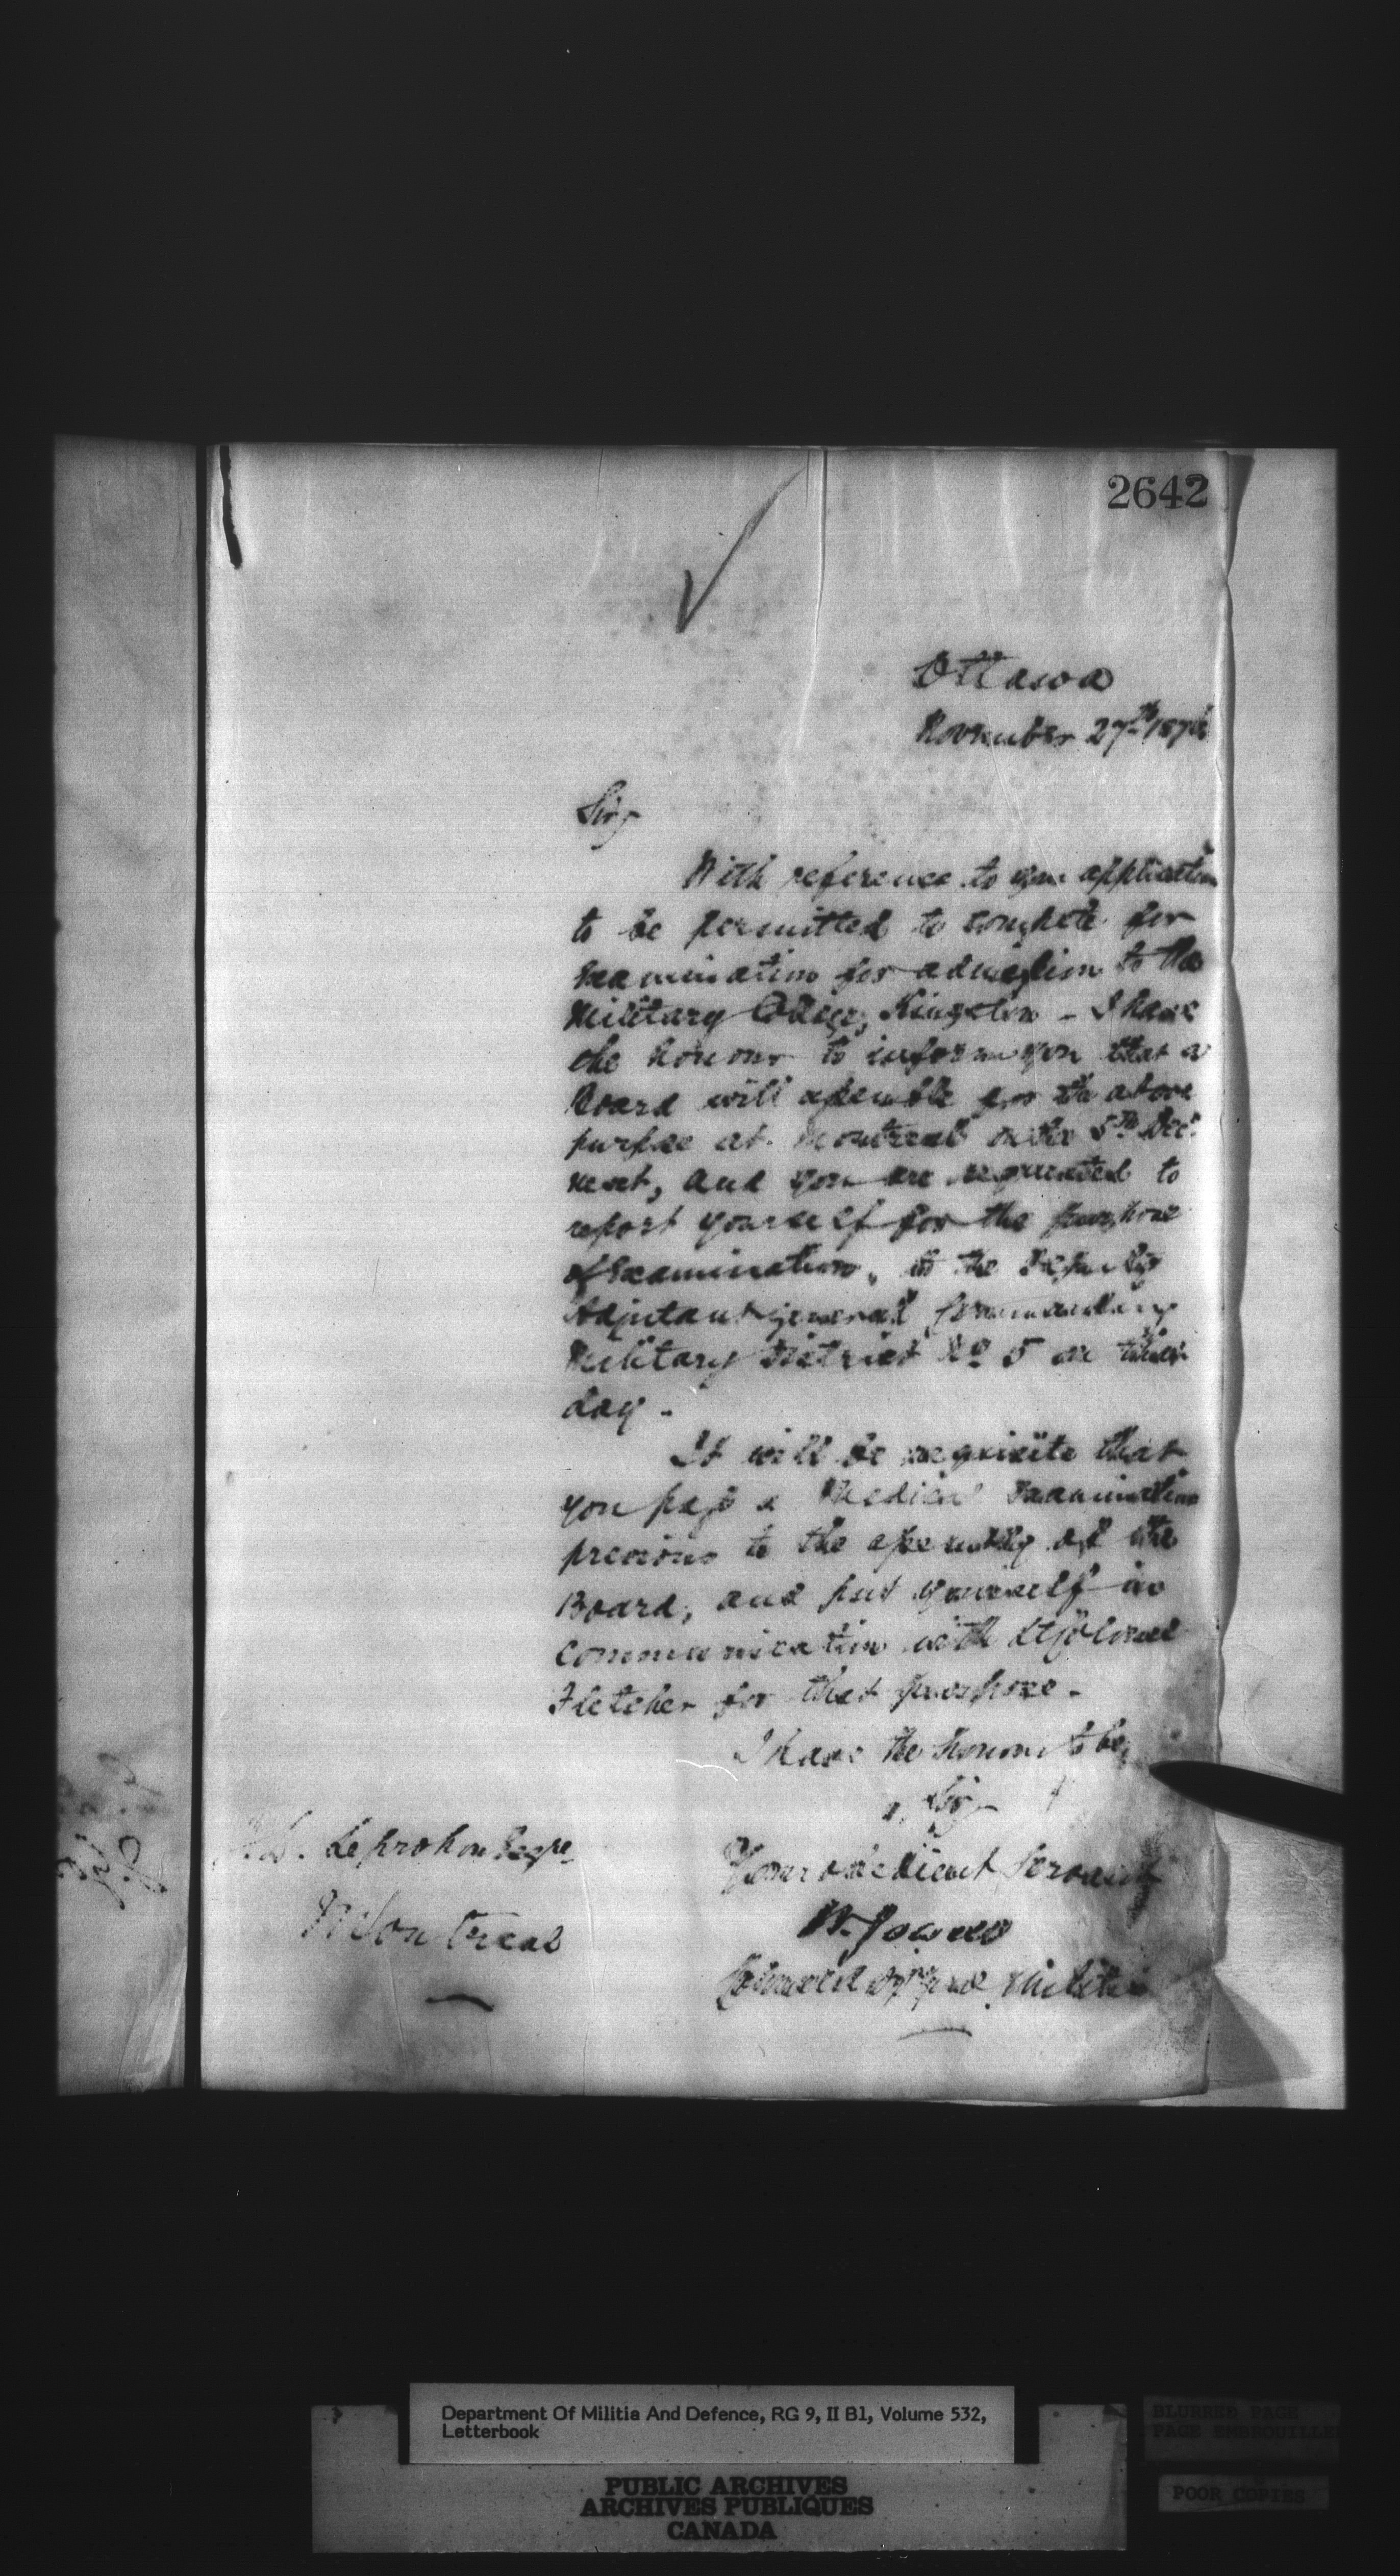 2642
Ottawa
November 27th 187
Sir,
With reference to your application
to be permitted to compete for
Examination for admission to the
Military College, Kingston - I have
the honour to inform you that a
Board will assemble for the above
purpose at Montreal on the 5th Decr.
next, and you are requested to
report yourself for the purpose
of Examination, to the Deputy
Adjutant General Commanding
Military District No 5 on that
day -
It will be requisite that
you pass a Medical Examination
previous to the assembly of the
Board, and put yourself in
communication with Lt Colonel
Fletcher for that purpose -
I have the honour to be,
Sir,
Your obedient Servant
W. Powell
Colonel Adjt Genl Militia
Leprohon Esqre
Montreal
Department Of Militia And Defence, RG 9, II B1, Volume 532,
Letterbook
PUBLIC ARCHIVES
ARCHIVES PUBLIQUES
CANADA
BLURRED PAGE
PAGE EMBROUILLE
POOR COPIES